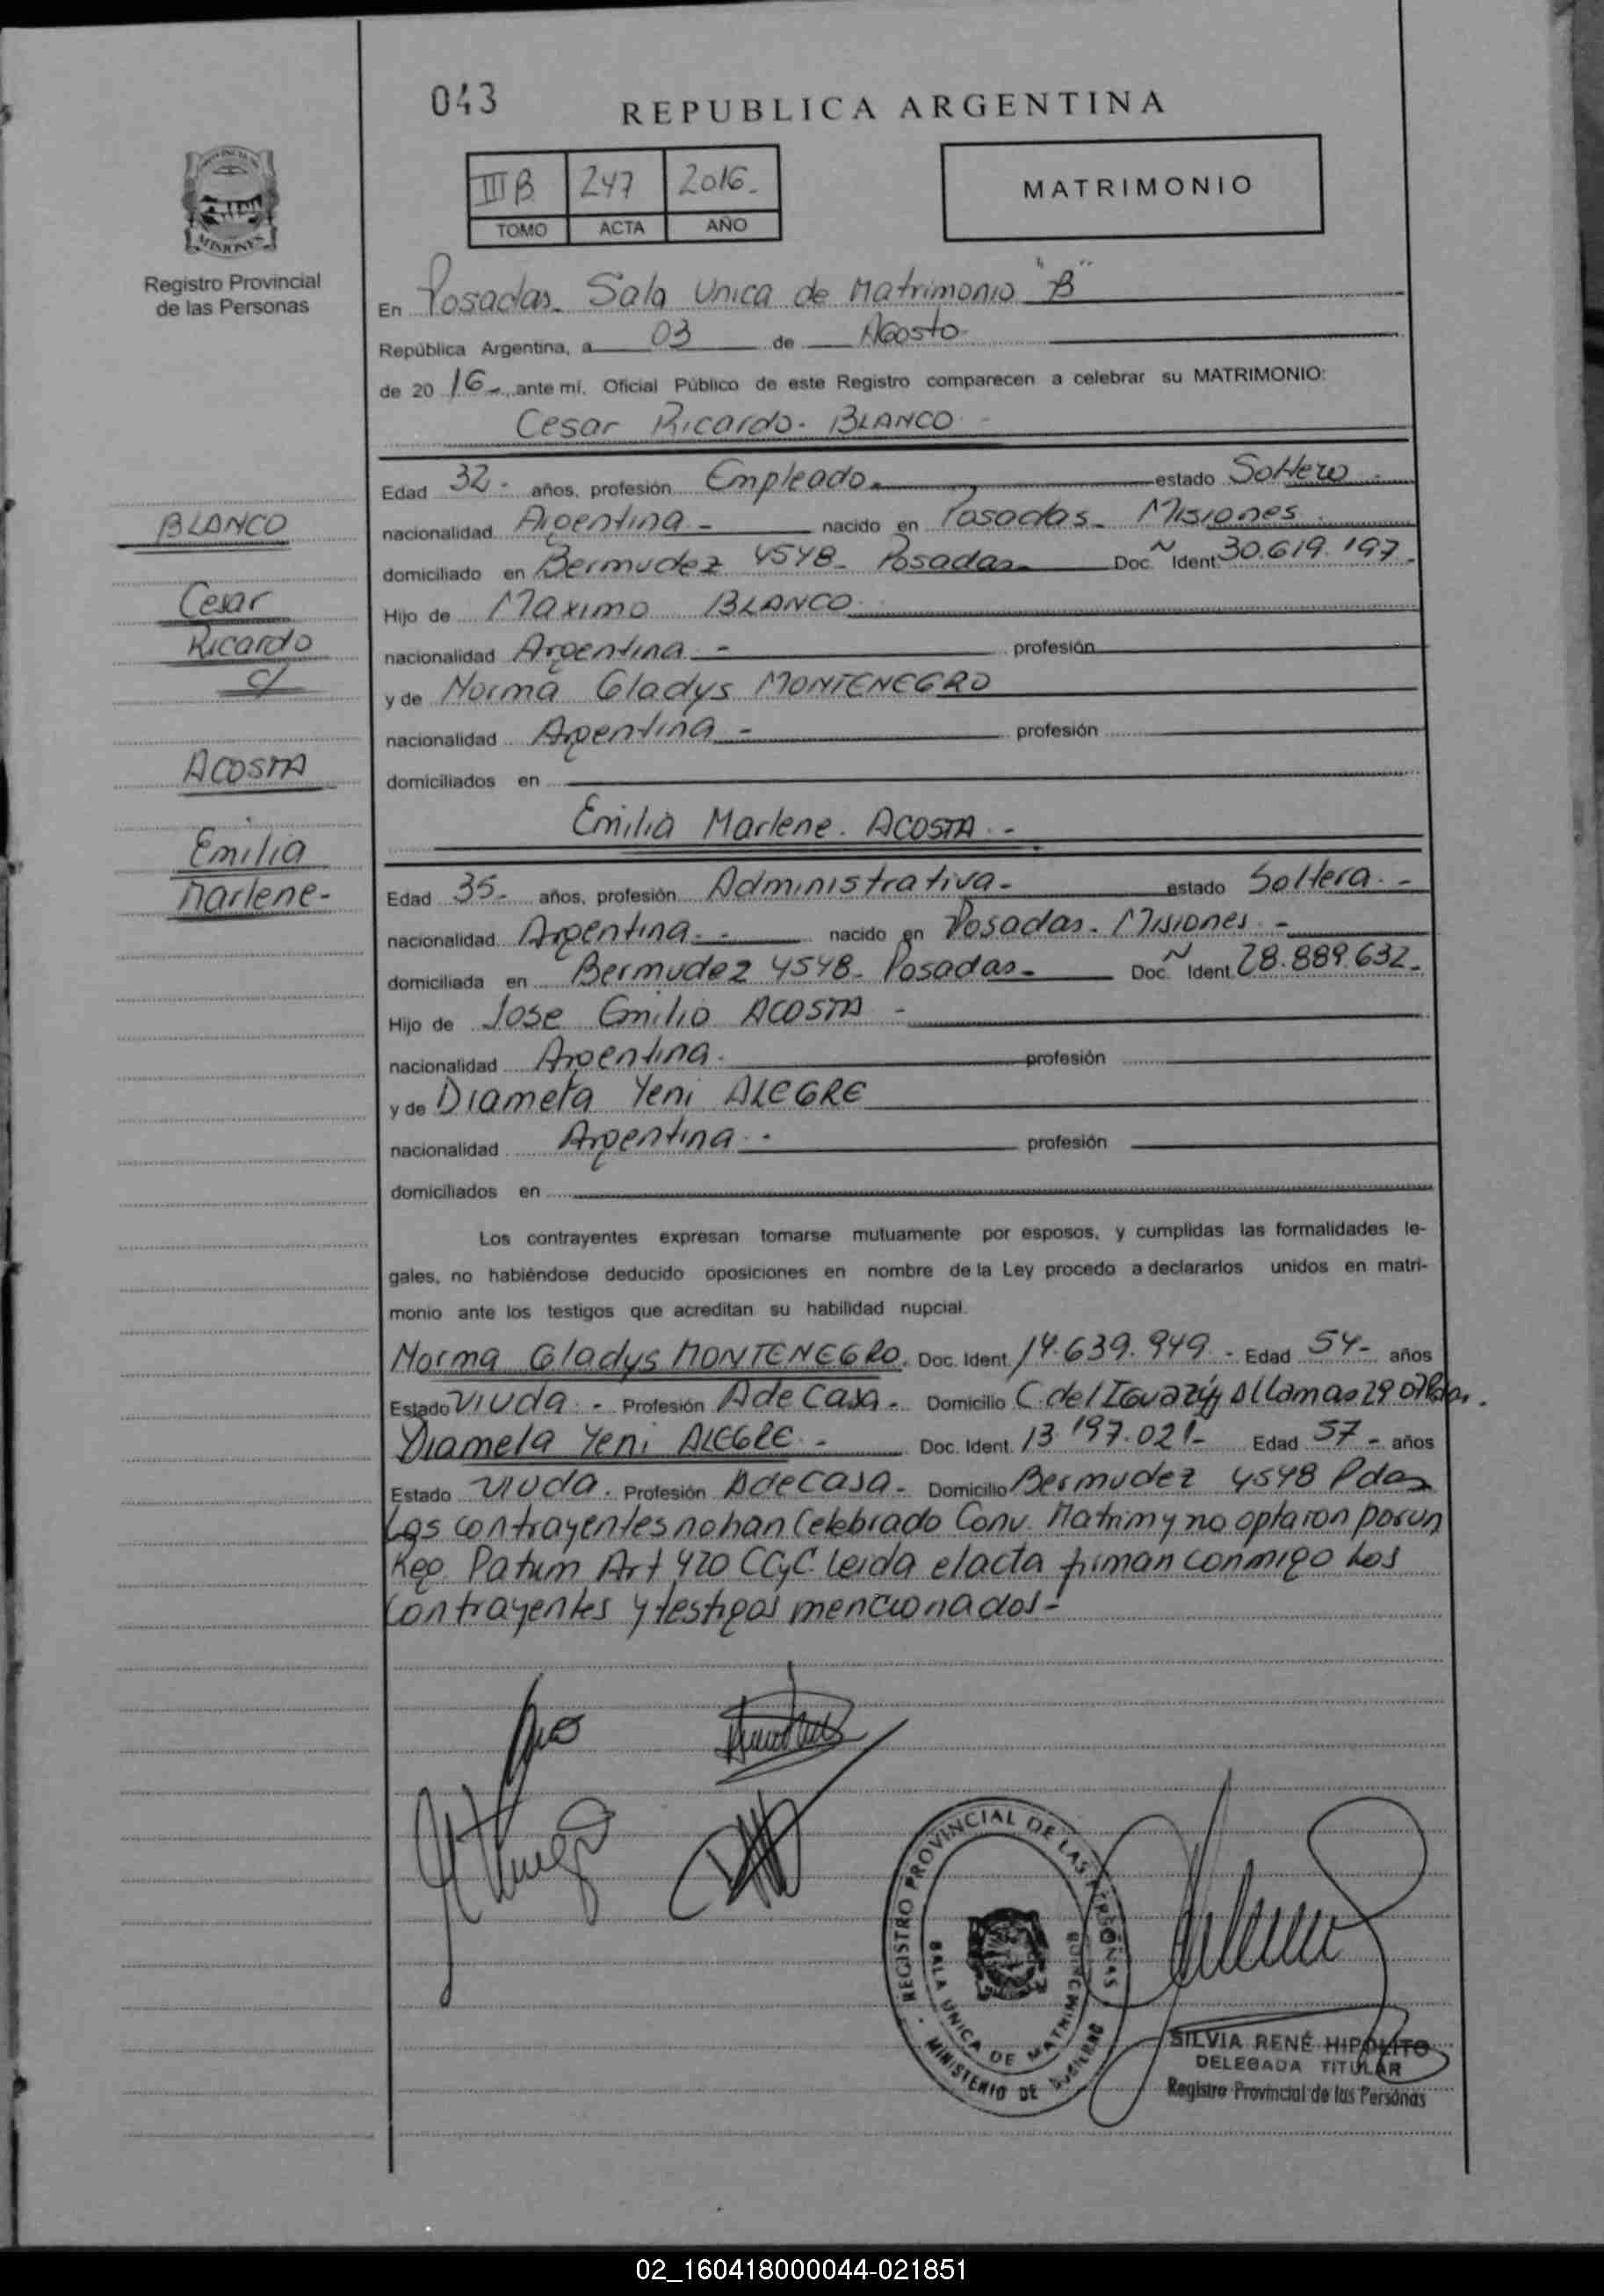 043
REPUBLICA ARGENTINA
III B 247 2016.-
TOMO ACTA AÑO
MATRIMONIO
PROVINCIA DE
MISIONES
Registro Provincial
de las Personas
En Posadas. Sala Unica de Matrimonio "B"
República Argentina, a 03 de Agosto.
de 20 16-, ante mí, Oficial Público de este Registro comparecen a celebrar su MATRIMONIO:
Cesar Ricardo. BLANCO -
Edad 32.- años, profesión Empleado. estado Soltero.-
nacionalidad Argentina.- nacido en Posadas. Misiones.
domiciliado en Bermudez 4548. Posadas. Doc. N Ident. 30.619.197.
Hijo de Maximo BLANCO.
nacionalidad Argentina.- profesión
y de Norma Gladys MONTENEGRO
nacionalidad Argentina.- profesión
domiciliados en
BLANCO
Cesar
Ricardo
c/
ACOSTA
Emilia
Marlene-
Emilia Marlene. ACOSTA.-
Edad 35.- años, profesión Administrativa.- estado Soltera.-
nacionalidad Argentina.- nacido en Posadas. Misiones.-
domiciliada en Bermudez 4548. Posadas.- Doc. N Ident. 28.889.632.
Hijo de Jose Emilio ACOSTA -
nacionalidad Argentina. profesión
y de Diamela Yeni ALEGRE
nacionalidad Argentina.- profesión
domiciliados en
Los contrayentes expresan tomarse mutuamente por esposos, y cumplidas las formalidades le-
gales, no habiéndose deducido oposiciones en nombre de la Ley procedo a declararlos unidos en matri-
monio ante los testigos que acreditan su habilidad nupcial.
Norma Gladys MONTENEGRO. Doc. Ident. 14.639.949.- Edad 54- años
Estado Viuda.- Profesión A de Casa. Domicilio C. del Iguazú
Diamela Yeni ALEGRE.- Doc. Ident. 13.197.021- Edad 57- años
Estado Viuda. Profesión A de Casa. Domicilio Bermudez 4548 Pdas
Los contrayentes no han Celebrado Conv. Matrim y no optaron por un
Reg. Patrim Art 420 CCyC. Leida el acta firman conmigo Los
Contrayentes y testigos mencionados-
REGISTRO PROVINCIAL DE LAS PERSONAS
SALA UNICA DE MATRIMONIOS
MINISTERIO DE GOBIERNO
SILVIA RENÉ HIPÓLITO
DELEGADA TITULAR
Registro Provincial de las Personas
02_160418000044-021851